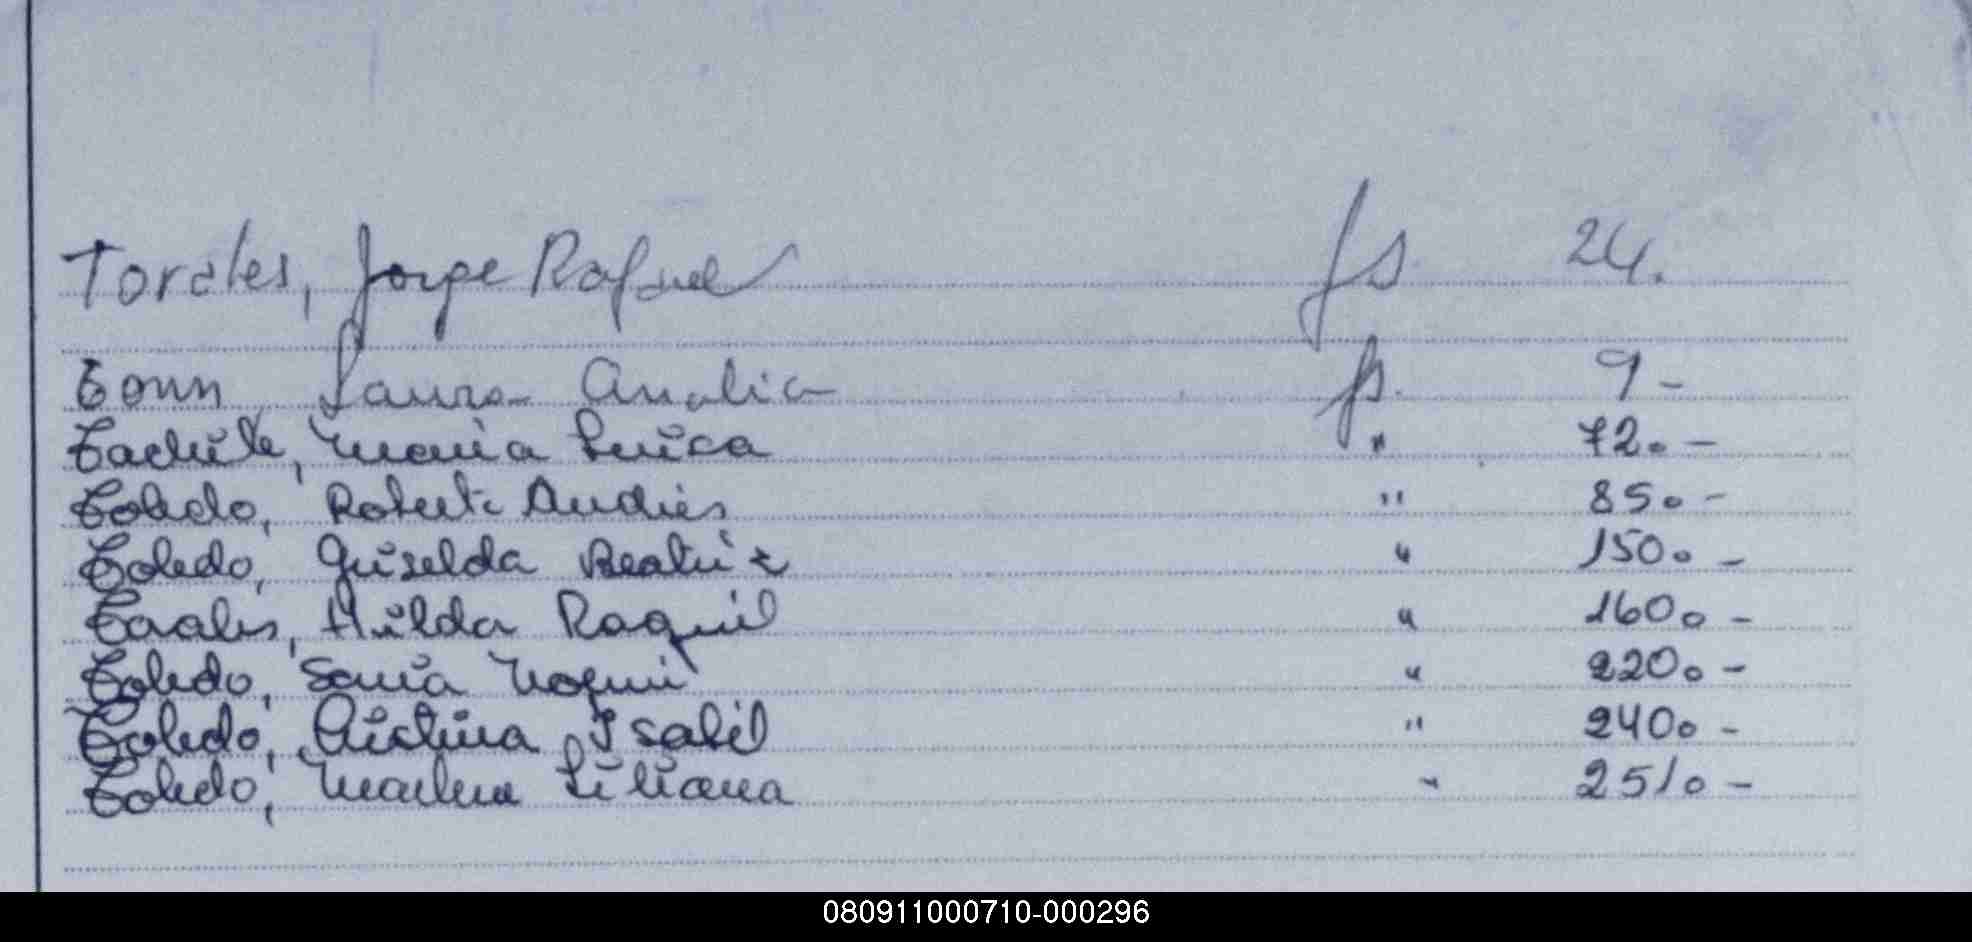 Torales, Jorge Rafael fs 24.
Tonn Laura Analia fs. 9 -
María Luisa " 72. -
Toledo, Roberto Andrés " 85. -
Toledo, Griselda Beatriz " 150. -
Hilda Raquel " 160. -
Toledo, Sonia Noemi " 220. -
Toledo, Cristina Isabel " 240. -
Toledo, Liliana " 251. -
080911000710-000296